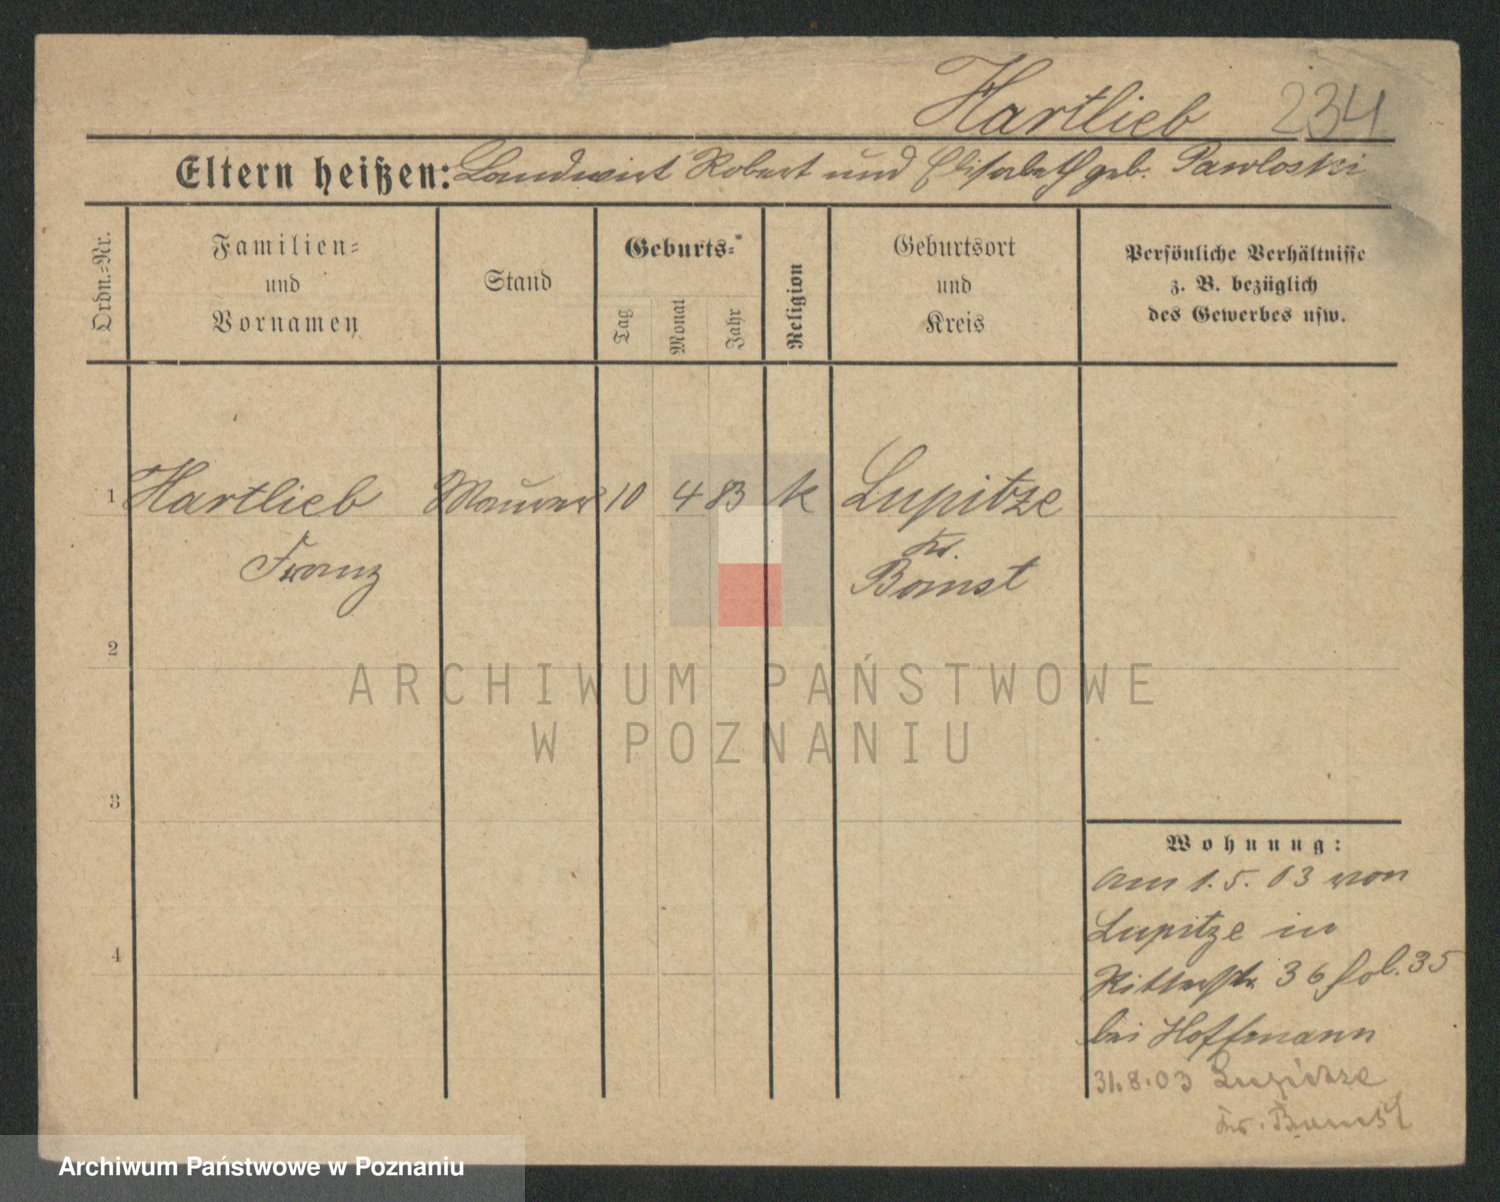 Hartlieb 234
Eltern heißen: Landwirt Robert und Elisabeth geb. Pawloski
Ordn.-Nr.
Familien-
und
Vornamen
Stand
Geburts-
Tag
Monat
Jahr
Religion
Geburtsort
und
Kreis
Persönliche Verhältnisse
z. B. bezüglich
des Gewerbes usw.
1 Hartlieb Maurer 10 4 83 k Lupitze
Kr.
Franz Bomst
2
ARCHIWUM PAŃSTWOWE
W POZNANIU
3
Wohnung:
am 1.5.03 von
Lupitze in
4
Ritterstr. 36 fol. 35
bei Hoffmann
31.8.03 Lupitze
Kr. Bomst
Archiwum Państwowe w Poznaniu